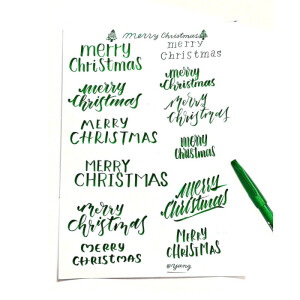 merry Christmas
merry
Christmas
merry
Christmas
MERRY
CHRISTMAS
MERRY
CHRISTMAS
merry
Christmas
MERRY
CHRISTMAS
merry
CHRISTMAS
merry
Christmas
merry
Christmas
merry
Christmas
Merry
Christmas
MERRY
CHRISTMAS